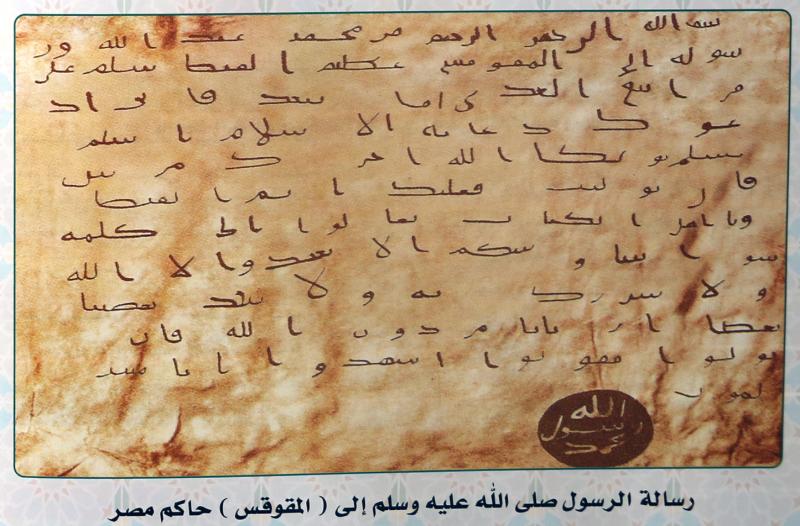 بسم الله الرحمن الرحيم من محمد عبد الله ور
سوله الى المقوقس عظيم القبط سلم على
من اتبع الهدى اما بعد فانى اد
عوك بدعاية الاسلام اسلم
تسلم يوتك الله اجرك مرتين
فان توليت فعليك اثم القبط
ويا اهل الكتاب تعالوا الى كلمة
سوا بيننا وبينكم الا نعبد الا الله
ولا نشرك به ولا يتخذ بعضنا
بعضا اربابا من دون الله فان
تولوا فقولوا اشهدوا بانا مس
لمون
الله
رسول
محمد
رسالة الرسول صلى الله عليه وسلم إلى ( المقوقس ) حاكم مصر